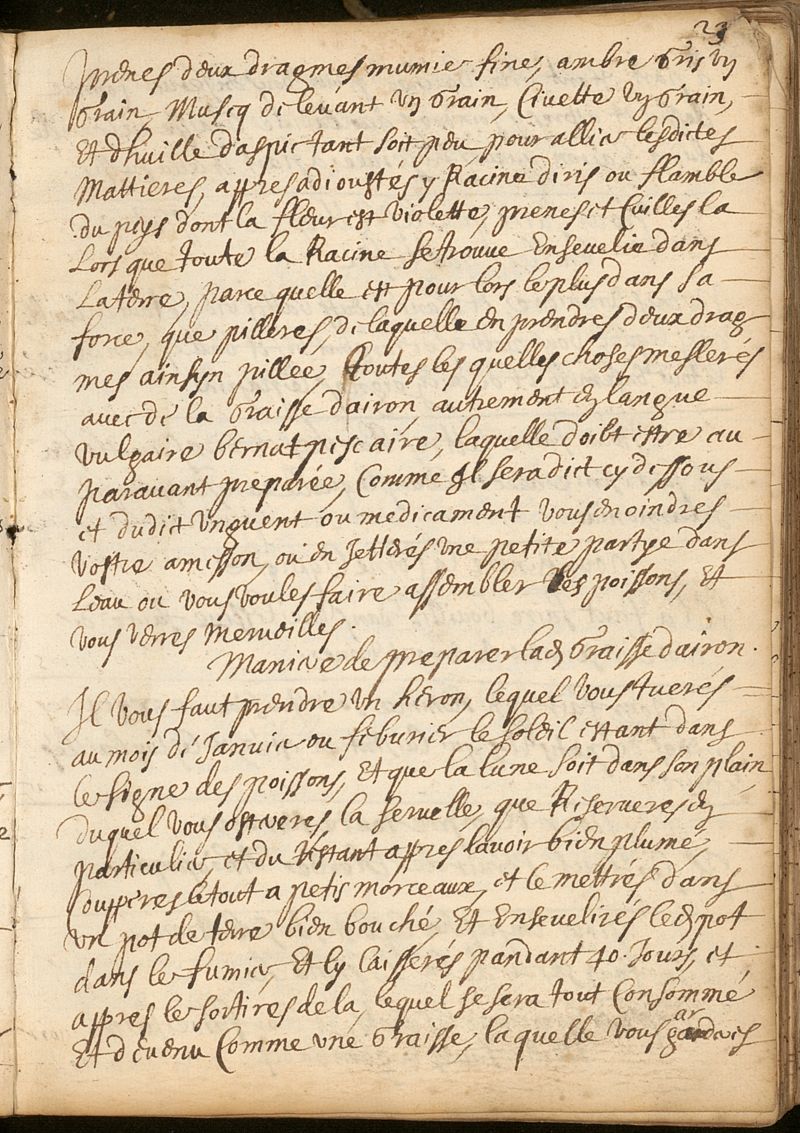 23
prenes deux dragmes mumie fine, ambre Gris vn
Grain, Muscq de leuant vn Grain, Ciuette vn Grain,
Et d'huille d'aspic tant soit peu, pour allier lesdictes
Mattieres, appres adioustés y Racine d'iris ou flamble
du peys dont la fleur est violette, prenes et Cuilles la
Lors que toute la Racine se trouue Enseuelie dans
La terre, parce quelle est pour lors le plus dans sa
force, que pilleres, de laquelle en prendres deux drag
mes ainsyn pillée, toutes les quelles choses meslerés
auec de la Graisse dairon, autrement en langue
vulgaire bernat pescaire, laquelle doibt estre au
parauant preparée, Comme Il sera dict cy dessous
et dudict vnguent ou medicament vous en oindres
vostre amesson, ou en Jetterés vne petite partye dans
Leau ou vous voules faire assembler les poissons, Et
vous verres merueilles.
Maniere de preparer lad Graisse dairon.
Il vous faut prendre vn heron, lequel vous tuerés
au mois de Januier ou feburier le soleil estant dans
le signe des poissons, Et que la lune soit dans son plain
duquel vous osteres la seruelle, que Reserueres en
particulier, et du restant appres lauoir bien plumé,
Coupperes le tout a petis morceaux, et le mettrés dans
vn pot de terre bien bouché, Et Enseuelirés led pot
dans le fumier, Et ly laisserés pandant 40. Jours, et
appres le sortires de la, lequel se sera tout Consommé
Et deuenu Comme vne Graisse, laquelle vous garderes